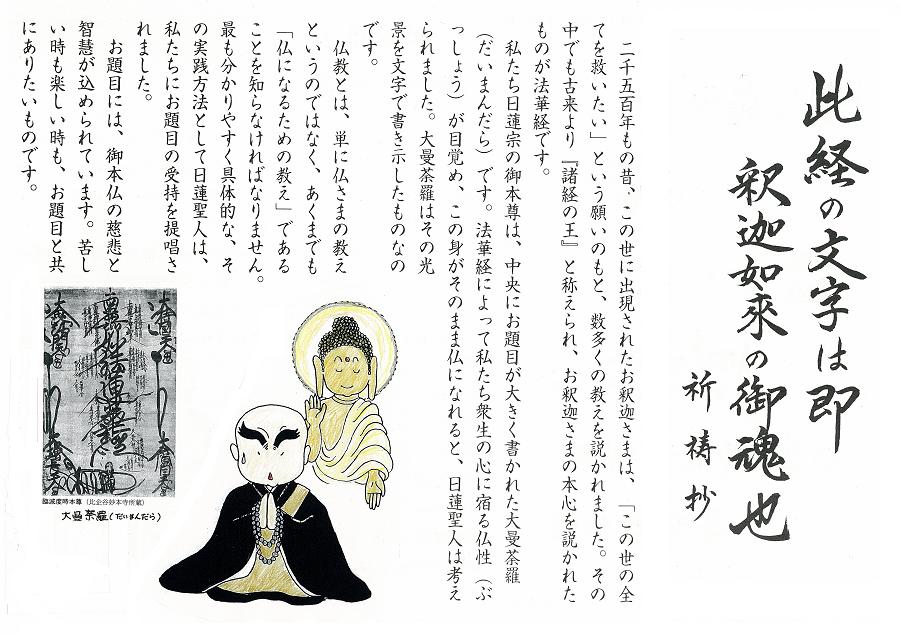 此経の文字は即
釈迦如来の御魂也
祈祷抄
二千五百年もの昔、この世に出現されたお釈迦さまは、「この世の全
てを救いたい」という願いのもと、数多くの教えを説かれました。その
中でも古来より『諸経の王』と称えられ、お釈迦さまの本心を説かれた
ものが法華経です。
私たち日蓮宗の御本尊は、中央にお題目が大きく書かれた大曼荼羅
（だいまんだら）です。法華経によって私たち衆生の心に宿る仏性（ぶ
っしょう）が目覚め、この身がそのまま仏になれると、日蓮聖人は考え
られました。大曼荼羅はその光
景を文字で書き示したものなの
です。
仏教とは、単に仏さまの教え
というのではなく、あくまでも
「仏になるための教え」である
ことを知らなければなりません。
最も分かりやすく具体的な、そ
の実践方法として日蓮聖人は、
私たちにお題目の受持を提唱さ
れました。
お題目には、御本仏の慈悲と
智慧が込められています。苦し
い時も楽しい時も、お題目と共
にありたいものです。
南無妙法蓮華経
臨滅度時本尊（比企谷妙本寺所蔵）
大曼荼羅（だいまんだら）